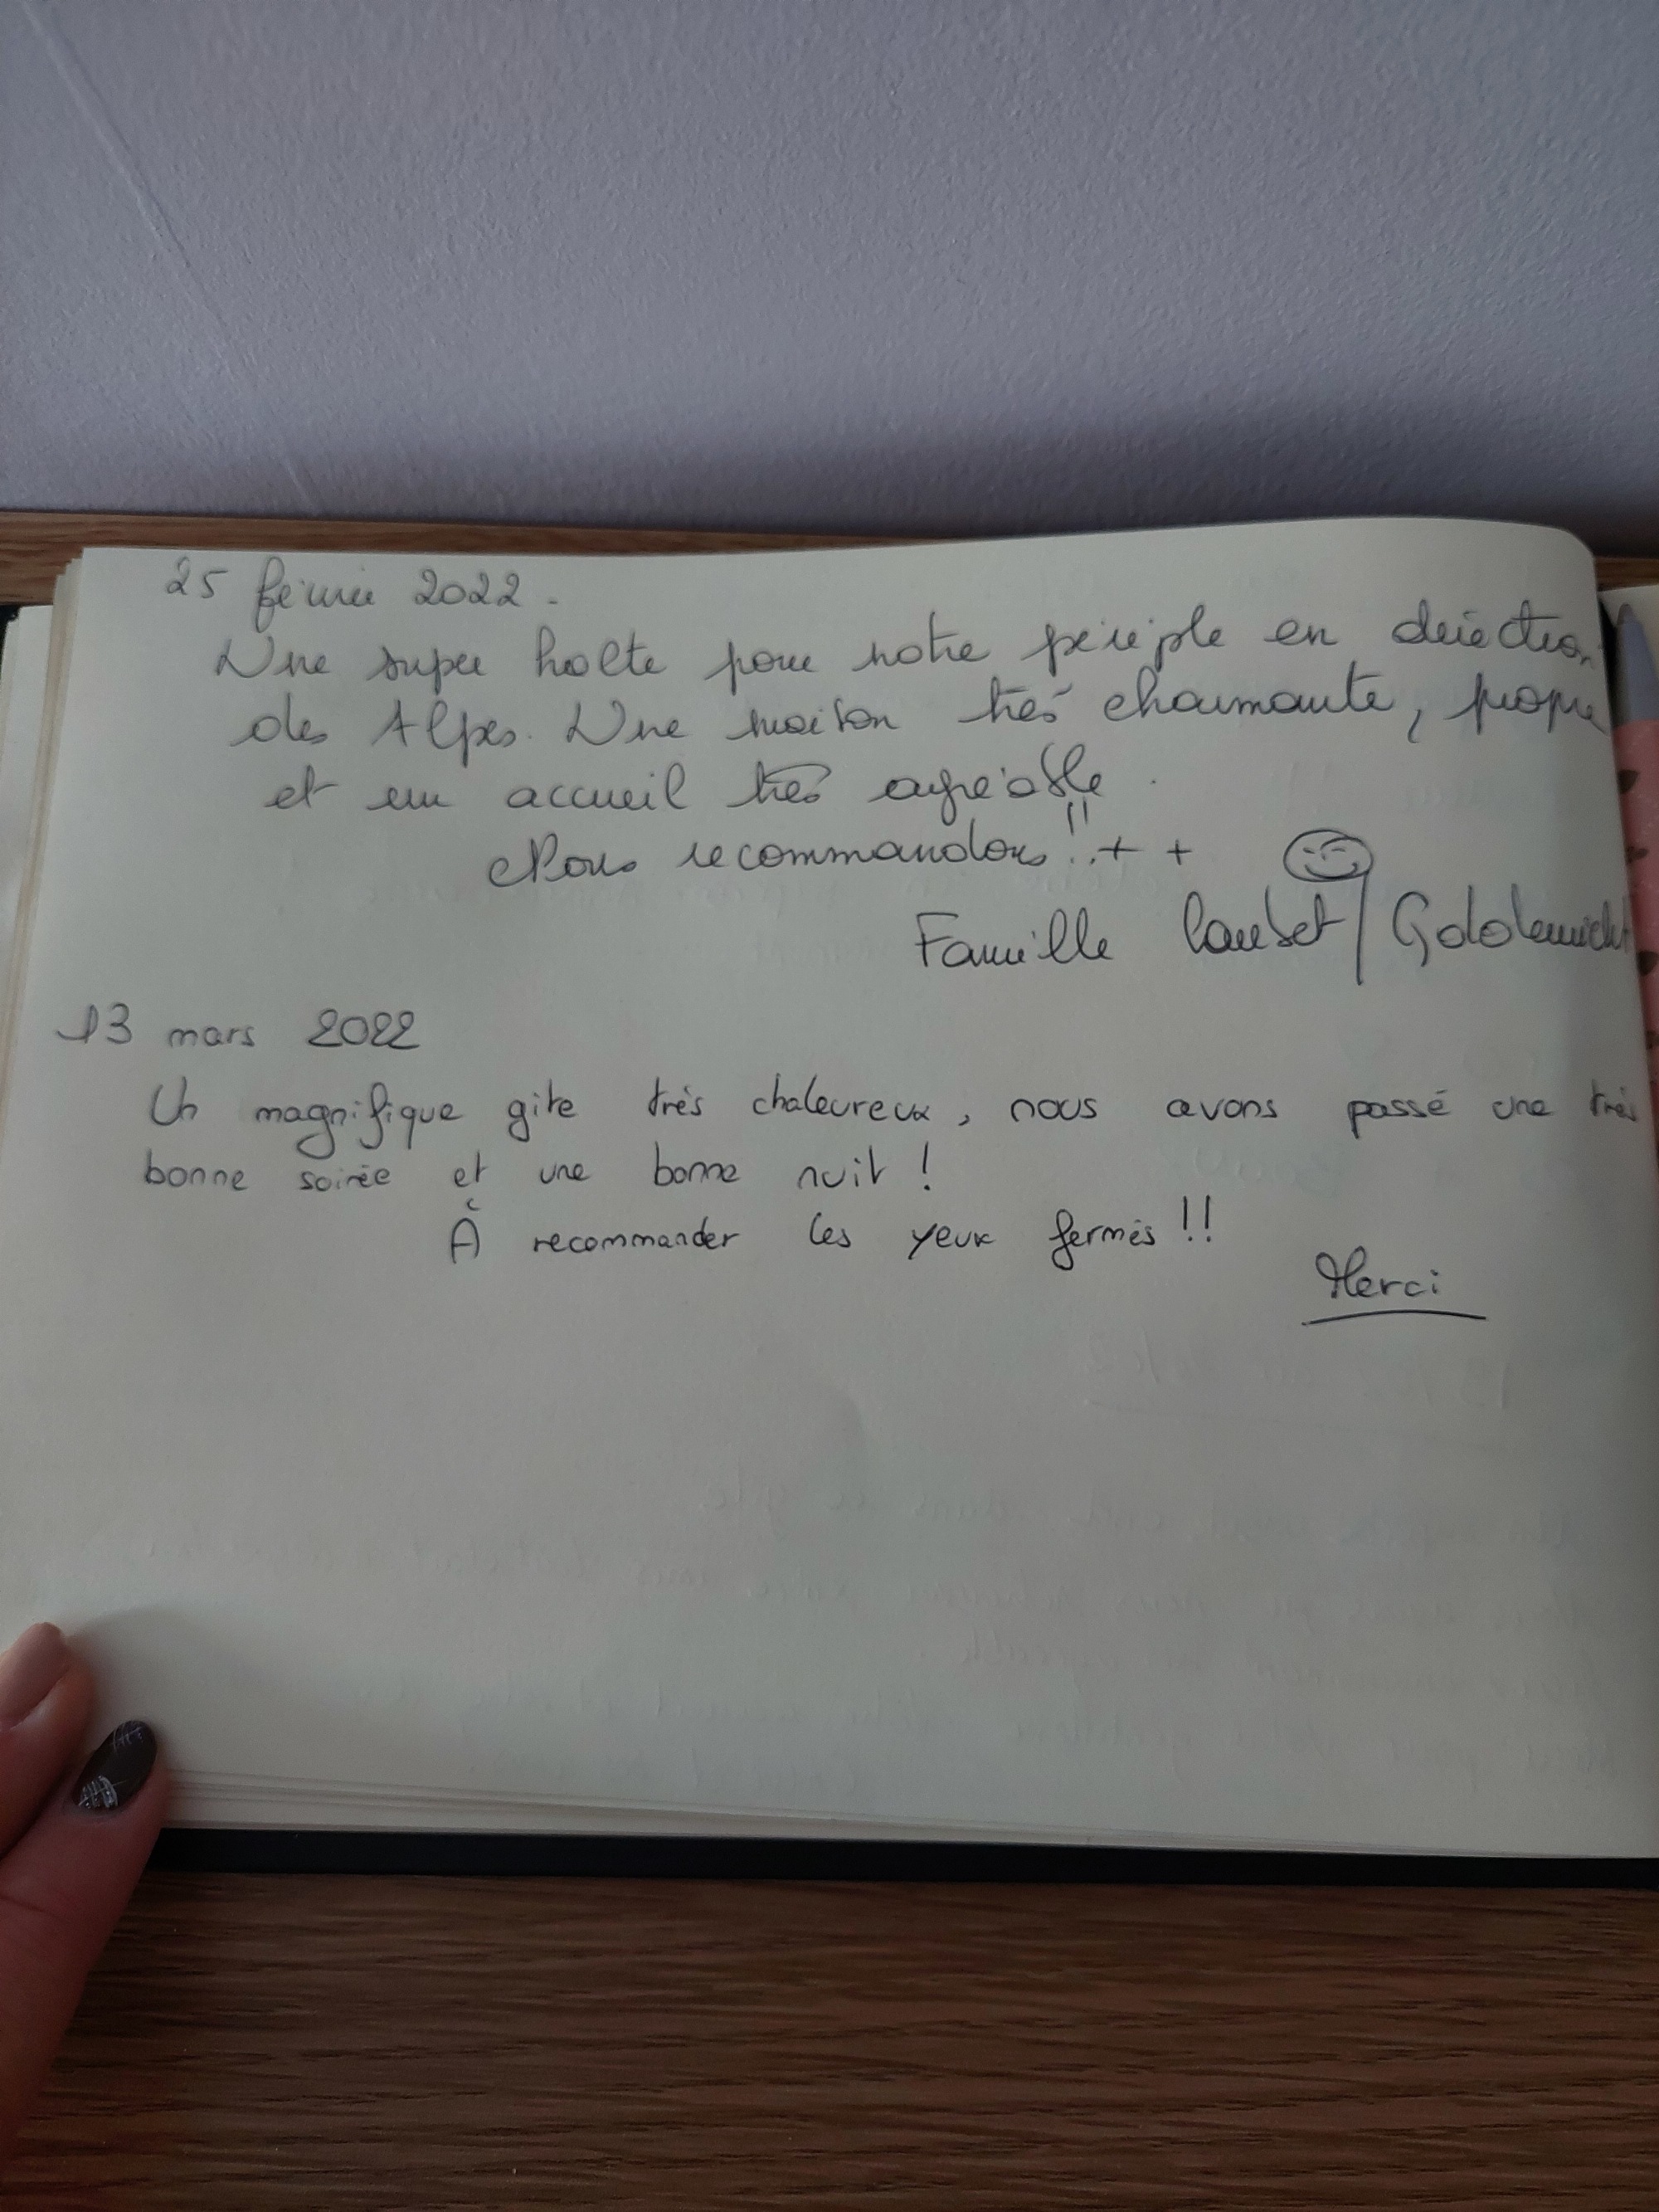 25 février 2022.
Une super halte pour notre périple en direction
des Alpes. Une maison très charmante, propre
et un accueil très agréable.
Nous recommandons !! ++
Famille
13 mars 2022
Un magnifique gite très chaleureux, nous avons passé une très
bonne soirée et une bonne nuit !
À recommander les yeux fermés !!
Merci